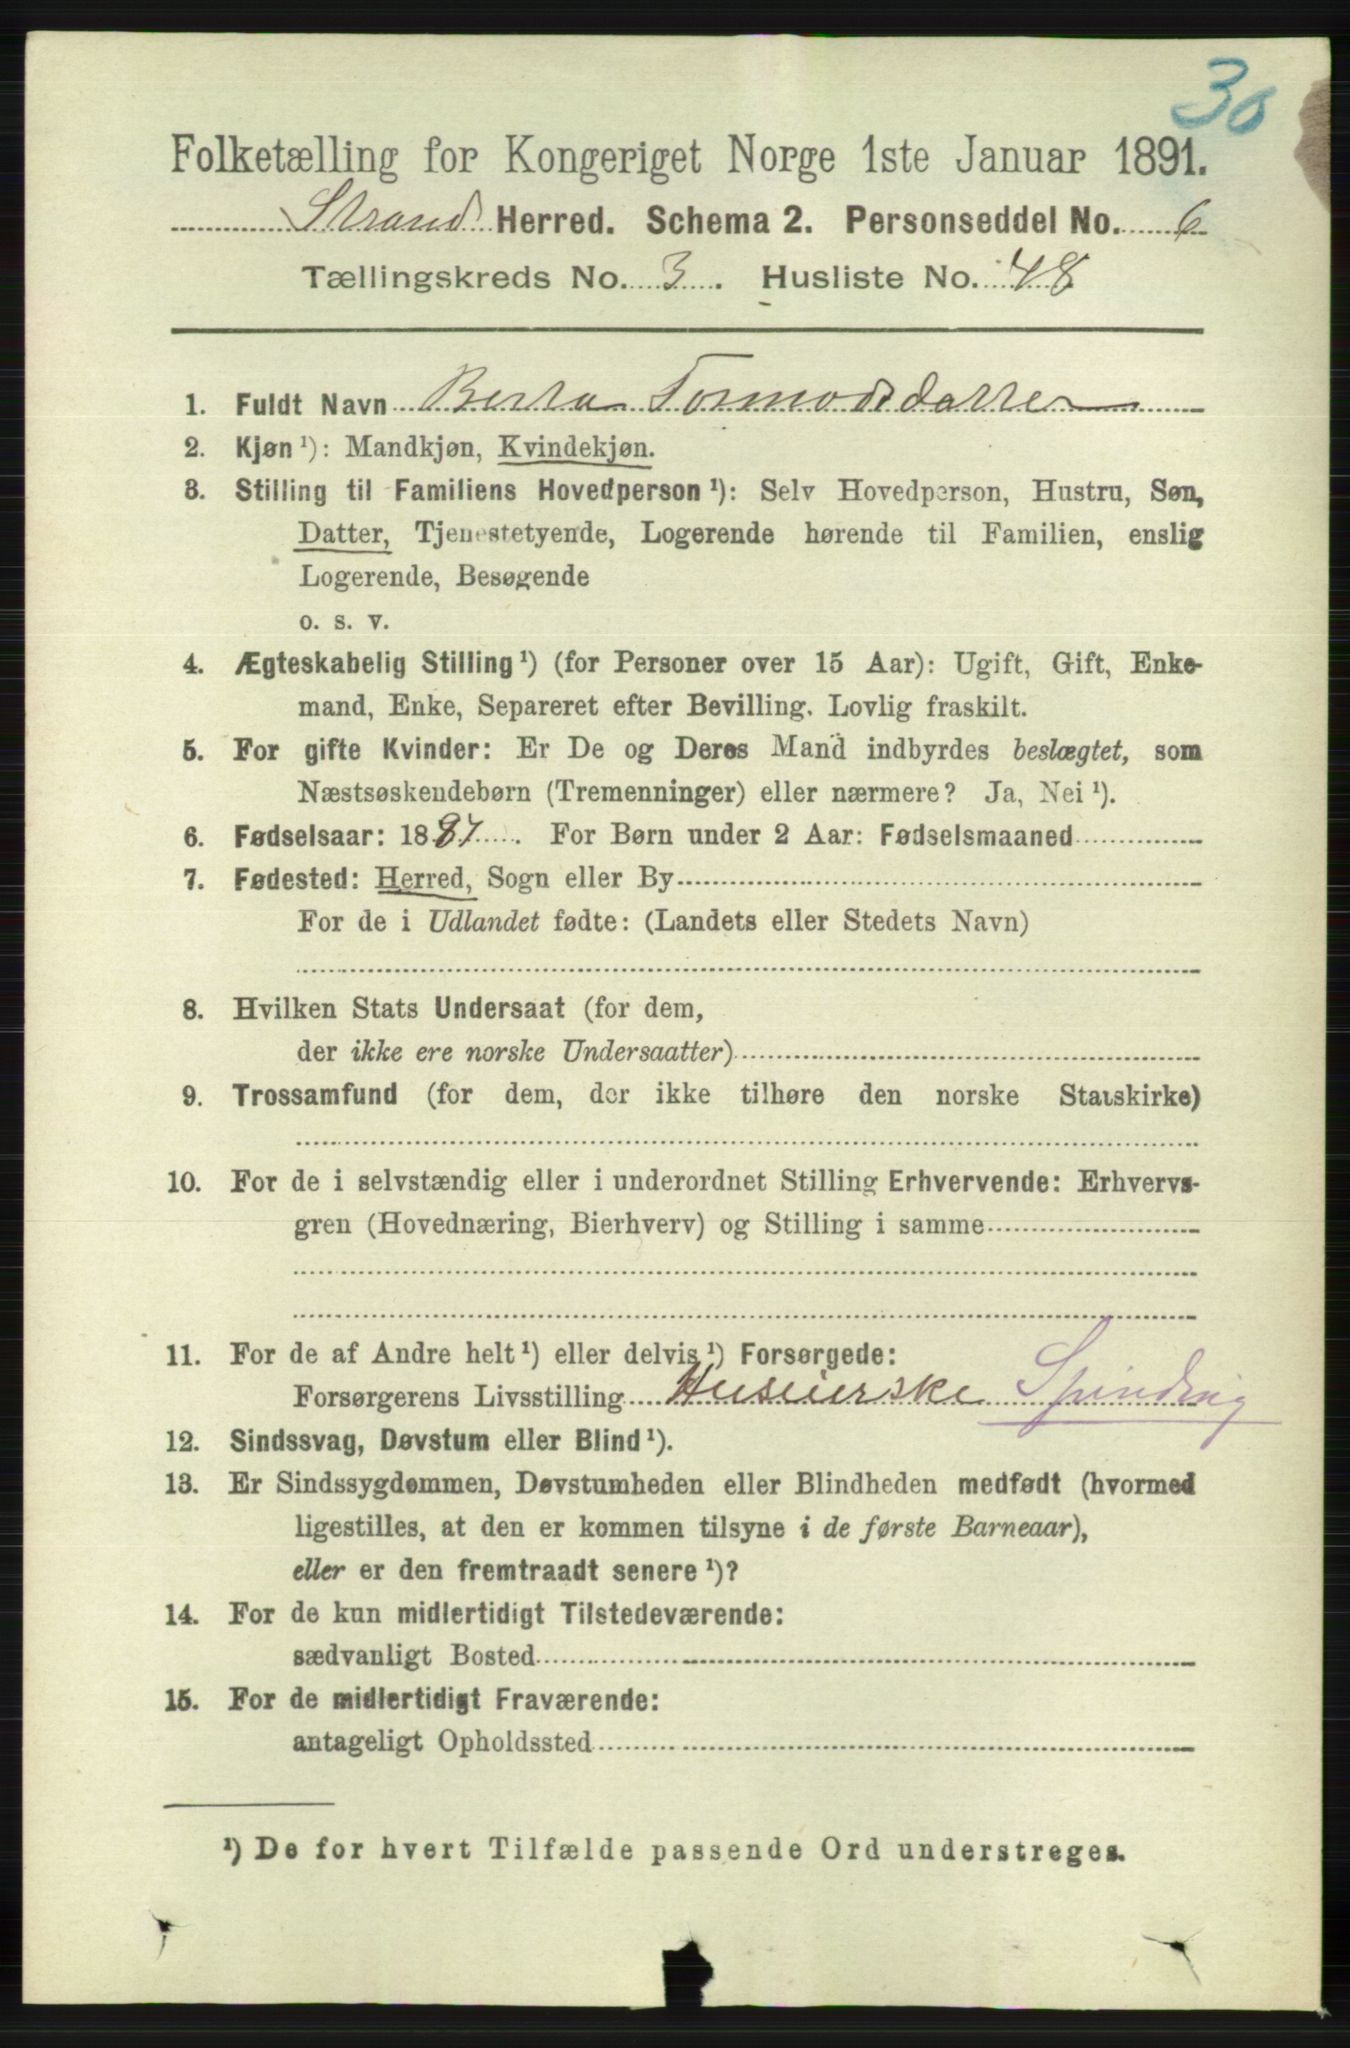 30
Folketælling for Kongeriget Norge 1ste Januar 1891.
Strand Herred. Schema 2. Personseddel No. 6
Tællingskreds No. 3. Husliste No. 48
1. Fuldt Navn Berta Tormodsdatter
2. Kjøn¹): Mandkjøn, Kvindekjøn.
3. Stilling til Familiens Hovedperson¹): Selv Hovedperson, Hustru, Søn,
Datter, Tjenestetyende, Logerende hørende til Familien, enslig
Logerende, Besøgende
o. s. v.
4. Ægteskabelig Stilling¹) (for Personer over 15 Aar): Ugift, Gift, Enke-
mand, Enke, Separeret efter Bevilling. Lovlig fraskilt.
5. For gifte Kvinder: Er De og Deres Mand indbyrdes beslægtet, som
Næstsøskendebørn (Tremenninger) eller nærmere? Ja, Nei¹).
6. Fødselsaar: 1887. For Børn under 2 Aar: Fødselsmaaned
7. Fødested: Herred, Sogn eller By
For de i Udlandet fødte: (Landets eller Stedets Navn)
8. Hvilken Stats Undersaat (for dem,
der ikke ere norske Undersaatter)
9. Trossamfund (for dem, der ikke tilhøre den norske Statskirke)
10. For de i selvstændig eller i underordnet Stilling Erhvervende: Erhvervs-
gren (Hovednæring, Bierhverv) og Stilling i samme
11. For de af Andre helt¹) eller delvis¹) Forsørgede:
Forsørgerens Livsstilling Huseierske Spinding
12. Sindssvag, Døvstum eller Blind¹).
13. Er Sindssygdommen, Døvstumheden eller Blindheden medfødt (hvormed
ligestilles, at den er kommen tilsyne i de første Barneaar),
eller er den fremtraadt senere¹)?
14. For de kun midlertidigt Tilstedeværende:
sædvanligt Bosted
15. For de midlertidigt Fraværende:
antageligt Opholdssted
¹) De for hvert Tilfælde passende Ord understreges.